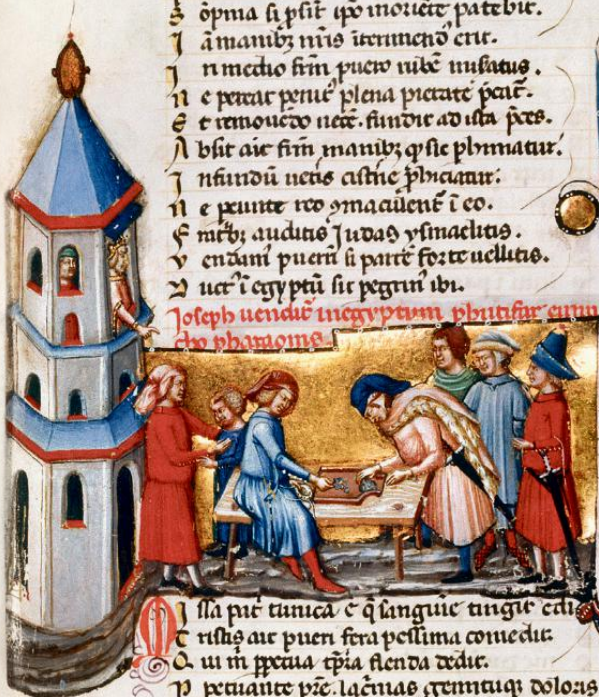 S opma si psit ipo moriēte patebit.
I a manibz nris iterimendo erit.
I n medio frm puero rubē
N e pereat penit plena pietate petit.
E t removēdo necē. fundit ad ista pces.
A bsit ait frm manibz q sic pimatur.
I nfundū ueris cistne phiciatur.
N e peunte reo gmaculent i eo.
F ratbz auditis Iudas ysmaelitis.
V endam pueri si parte forte uellitis.
D ucet i egyptū sic pegrin ibi.
Ioseph uendit in egyptum phutifar eunu
cho pharaonis
M issa pri tunica e q sanguie tingit edi
T ristis ait pueri fera pessima comedit.
Q ui m ppetua tpra flenda dedit.
P petuante pre. lacrimas gemituq doloris